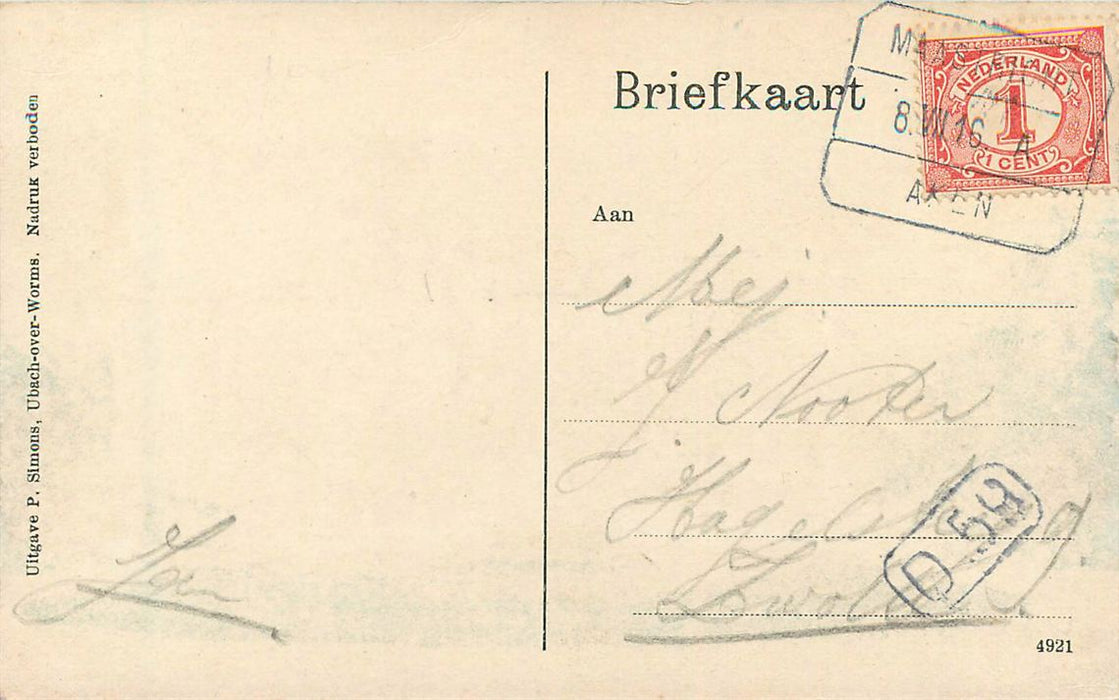 Uitgave P. Simons, Ubach-over-Worms. Nadruk verboden
Briefkaart
MAASTRICHT
8.VII.16. A
AKEN
NEDERLAND
1
1 CENT
Aan
Mej.
J. Nooter
Zwolle
D 59
Jan
4921